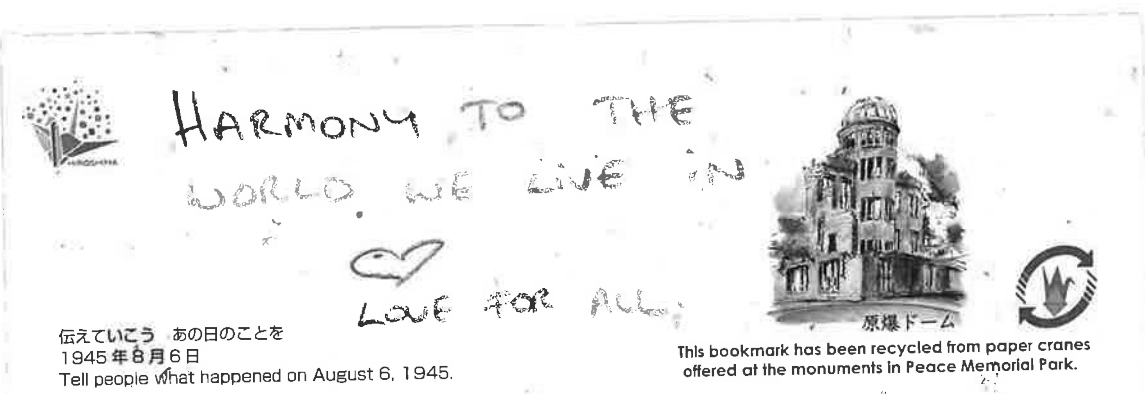 HIROSHIMA
HARMONY TO THE
WORLD WE LIVE IN
LOVE FOR ALL.
伝えていこう あの日のことを
1945年8月6日
Tell people what happened on August 6, 1945.
原爆ドーム
This bookmark has been recycled from paper cranes
offered at the monuments in Peace Memorial Park.